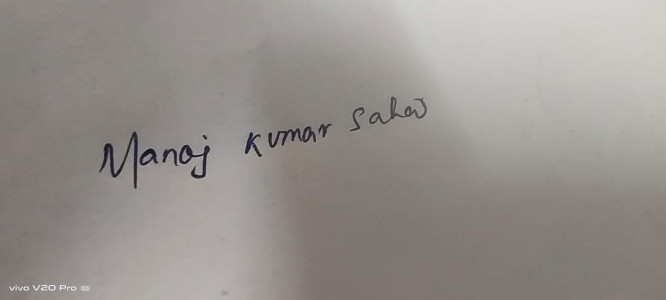 Manoj Kumar Sahoo
vivo V20 Pro 5G